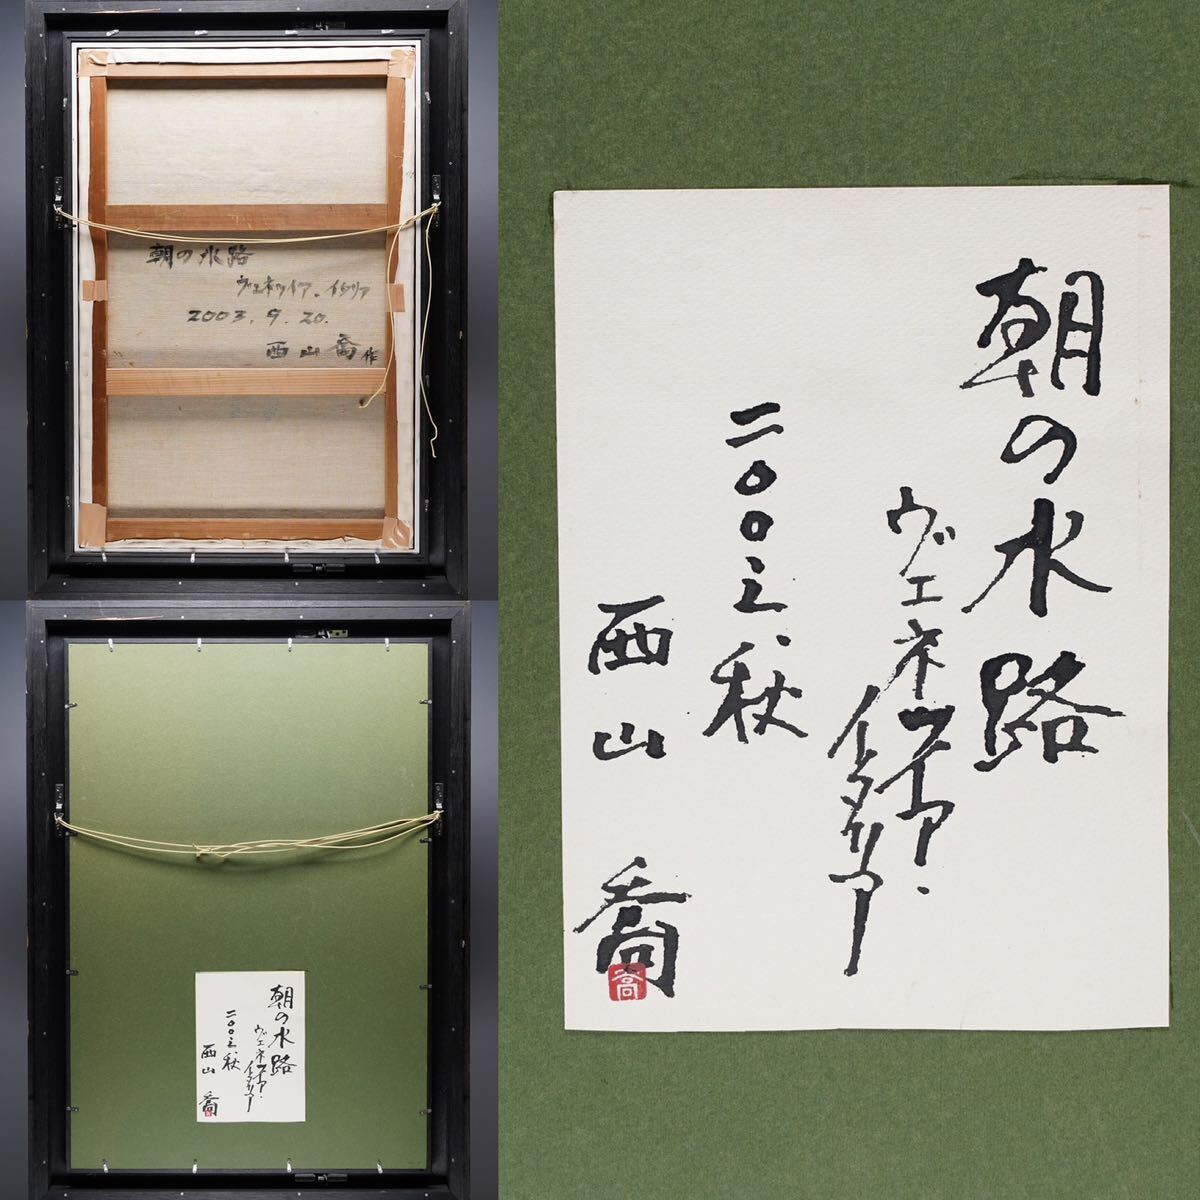 朝の水路
ヴェネツィア.イタリア
2003.9.20.
西山喬作
朝の水路
ヴェネツィア.
イタリア
二〇〇三、秋
西山喬
喬
朝の水路
ヴェネツィア.
イタリア
二〇〇三、秋
西山喬